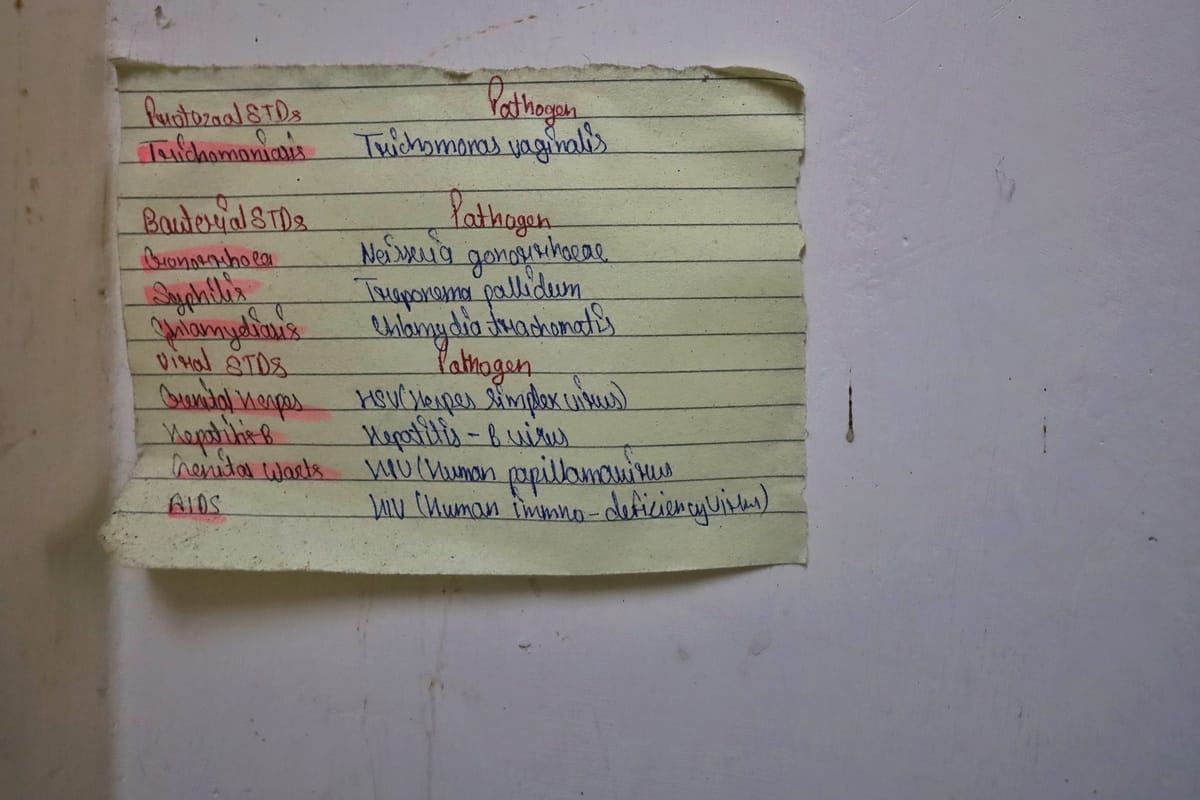 Protozoal STDs Pathogen
Trichomoniasis Trichomonas vaginalis
Bauterial STDs Pathogen
Gonorrhoea Neisseria gonorrhoeae
Syphilis Treponema pallidum
Chlamydiasis Chlamydia trachomatis
Viral STDs Pathogen
Genital Herpes HSV (Herpes simplex virus)
Hepatitis-B Hepatitis - B virus
Genital Warts HPV (Human papillamavirus
AIDS HIV (Human immno - deficiency virus)